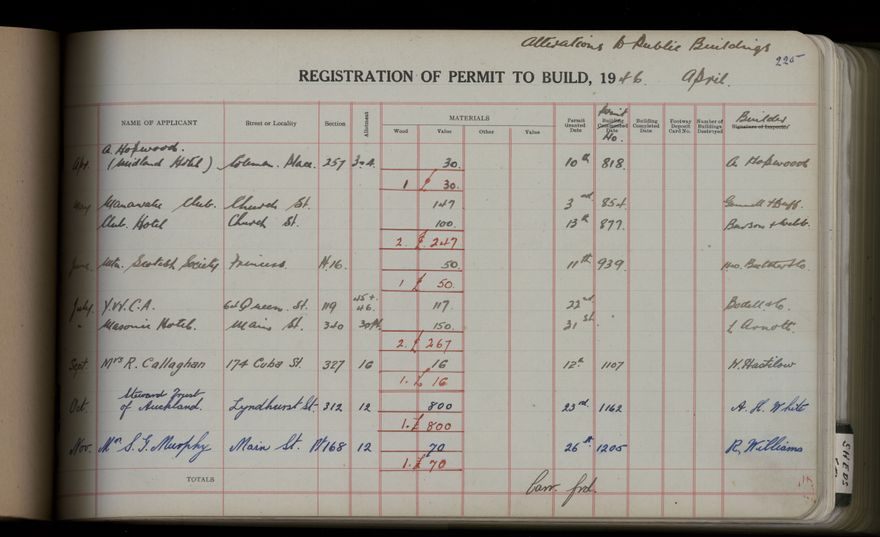 Alterations to Public Buildings
225
REGISTRATION OF PERMIT TO BUILD, 1946 April.
NAME OF APPLICANT Street or Locality Section Allotment MATERIALS Wood Value Other Value Permit Granted Date Permit No. Building Commenced Date Building Completed Date Footway Deposit Card No. Number of Buildings Destroyed Builder Signature of Inspector
A Hopwood.
Apr. (Midland Hotel) Coleman Place. 257 3-4. 30. 10th 818. A Hopwood
1 £ 30.
May Manawatu Club. Church St. 147 3rd 854
Club Hotel Church St. 100. 13th 877.
2. £ 247
June Scotish Society Princess. 50. 11th 939
1 £ 50.
July Y.W.C.A. 64 Queen St. 119 45+ 46. 117. 22nd
" Masonic Hotel. Main St. 340 150. 31st. L Arnott.
2. £ 267
Sept. Mrs R. Callaghan 174 Cuba St. 327 16 16 12th 1107 W. Hastilow
1. £ 16
Steward Trust
Oct. of Auckland. Lyndhurst St. 312 12 800 23rd. 1162 A. H. White
1. £ 800
Nov. Mr S. G. Murphy Main St. Pt 168 12 70 26th 1205 R. Williams
1. £ 70
TOTALS Carr. frd.
SHEDS